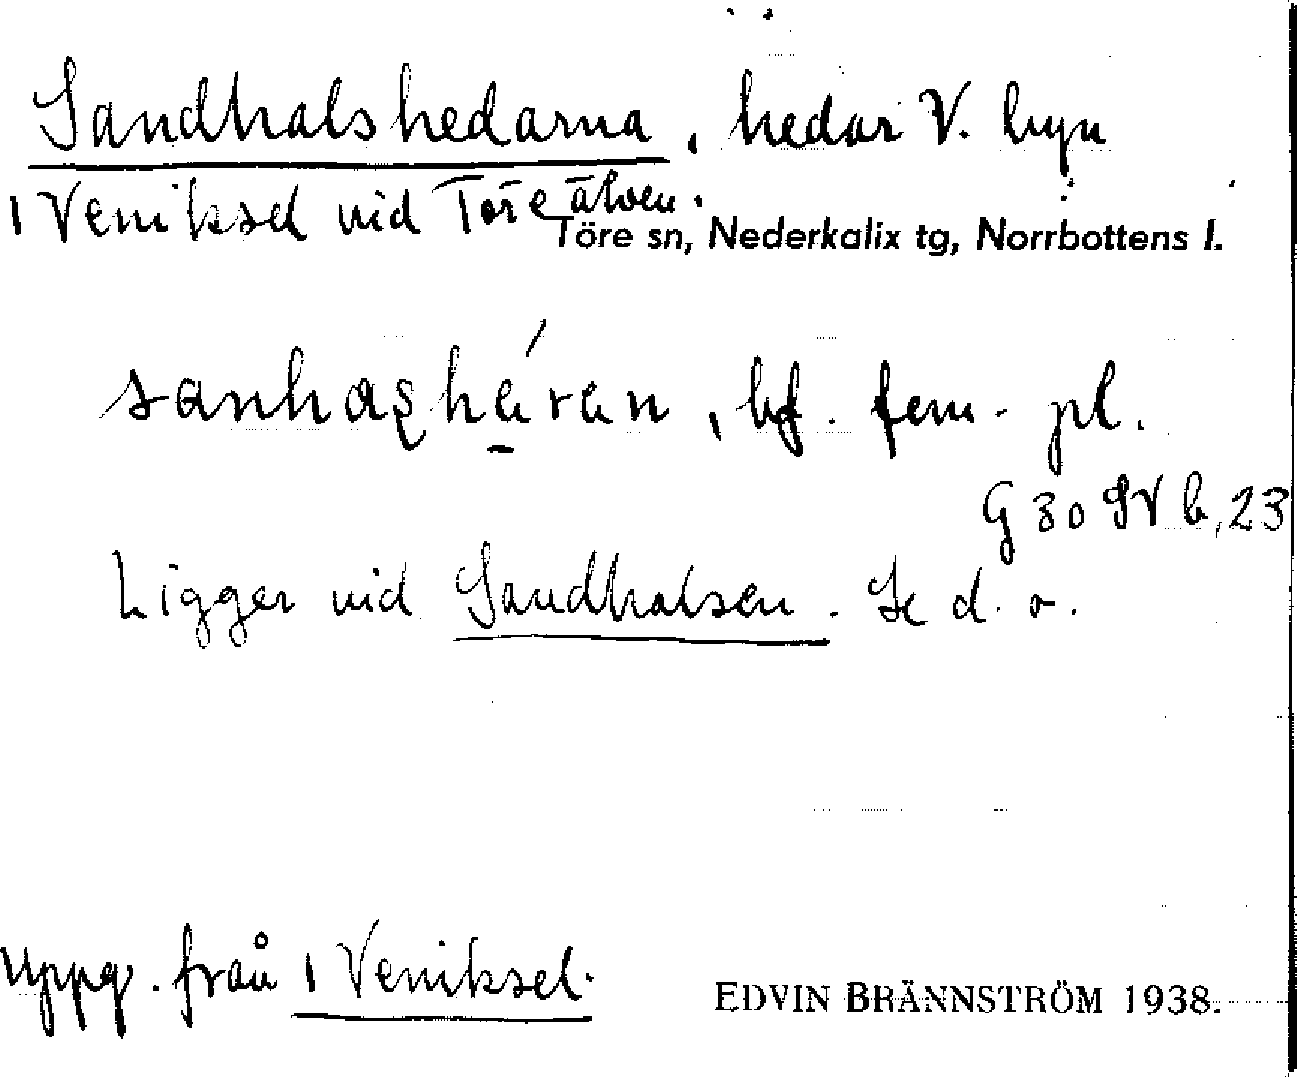 Sandhalshedarna, hedar V. byn
1 Veniksel vid Töreälven.
Töre sn, Nederkalix tg, Norrbottens l.
sanhaʂhe̱´ren, bf. fem. pl.
G 30 SV b, 23
Ligger vid Sandhalsen. Se d. o.
Uppg. från 1 Veniksel.
EDVIN BRÄNNSTRÖM 1938.